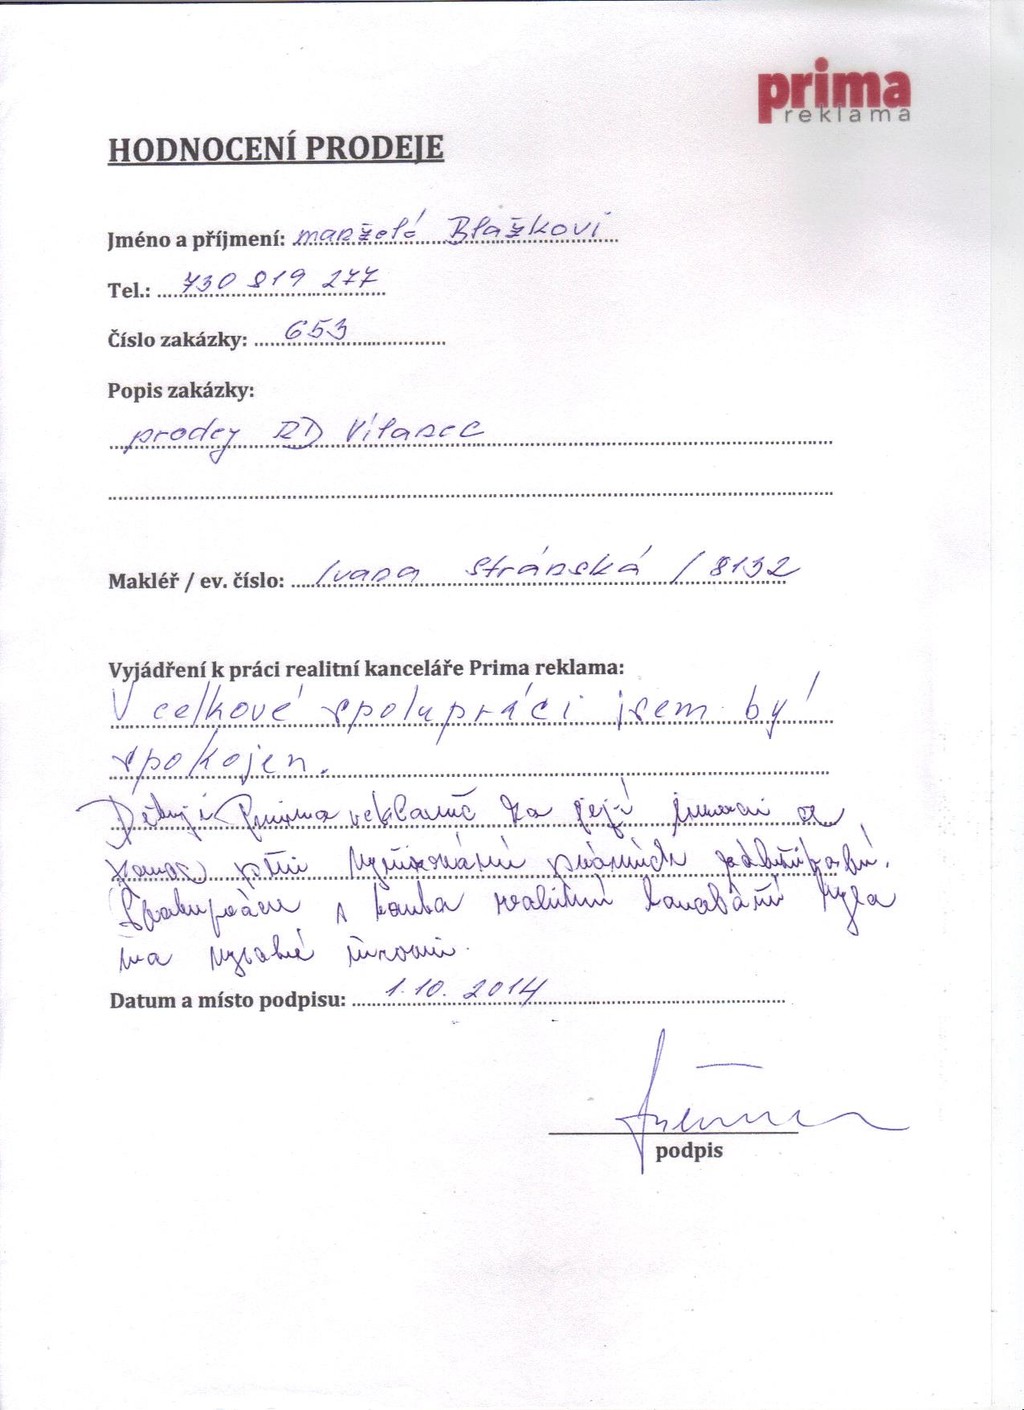 prima
reklama
HODNOCENÍ PRODEJE
Jméno a příjmení: manželé Blažkovi
Tel.: 730 819 277
Číslo zakázky: 653
Popis zakázky:
prodej RD Vílanec
Makléř / ev. číslo: Ivana Stránská / 8132
Vyjádření k práci realitní kanceláře Prima reklama:
V celkové spolupráci jsem by
spokojen.
Děkuji Prima reklamě za její a
pomoc při vyřizování právních
Spolupráce s touto realitní kanceláří byla
na vysoké úrovni.
Datum a místo podpisu: 1.10. 2014
podpis